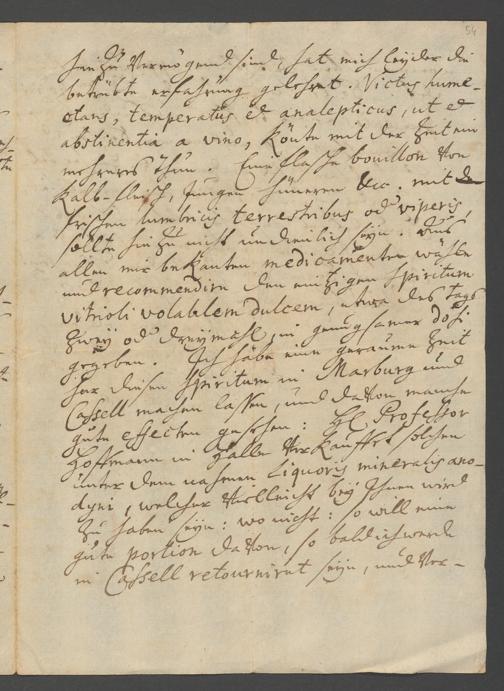 54
hinzu Vermögend sind, hat mich leyder die
betrübte erfahrung gelehret. Victus hume-
ctans, temperatus et analepticus, ut et
abstinentia a vino, könte mit der Zeit ein
mehrers thun. Eine flasche bouillon von
Kalb-fleisch, jungen hüneren &c. mit
frischen lumbricis terrestribus od viperis
sollte hinzu nicht undienlich seyn. Aus
allen mir bekanten medicamenten wüste
und recommendire den einzigen Spiritum
vitrioli volatilem dulcem, etwa des tags
Zwey od dreymahl, in genugsamer dosi
gegeben. Ich habe eine geraume Zeit
her diesen Spiritum in Marburg und
Cassell machen lassen, und davon manche
gute effecten gesehen: H Professor
Hoffmann in Halle verkauffet solchen
unter dem nahmen Liquoris mineralis ano-
dyni, welcher vielleicht bey Ihnen wird
zu haben seyn: wo nicht: so will eine
gute portion davon, so bald ich werde
in Cassell retourniret seyn, und ver-